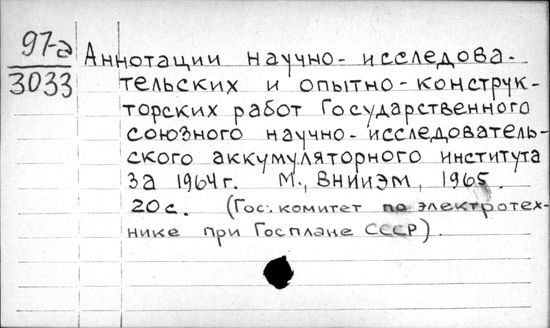 97-а
3033
Аннотации научно-исследова-
тельских и опытно-конструк-
торских работ Государственного
союзного научно-исследователь-
ского аккумуляторного института
за 1964 г. М., ВНИИЭМ, 1965.
20 с. (Гос. комитет по электротех-
нике при Госплане СССР).